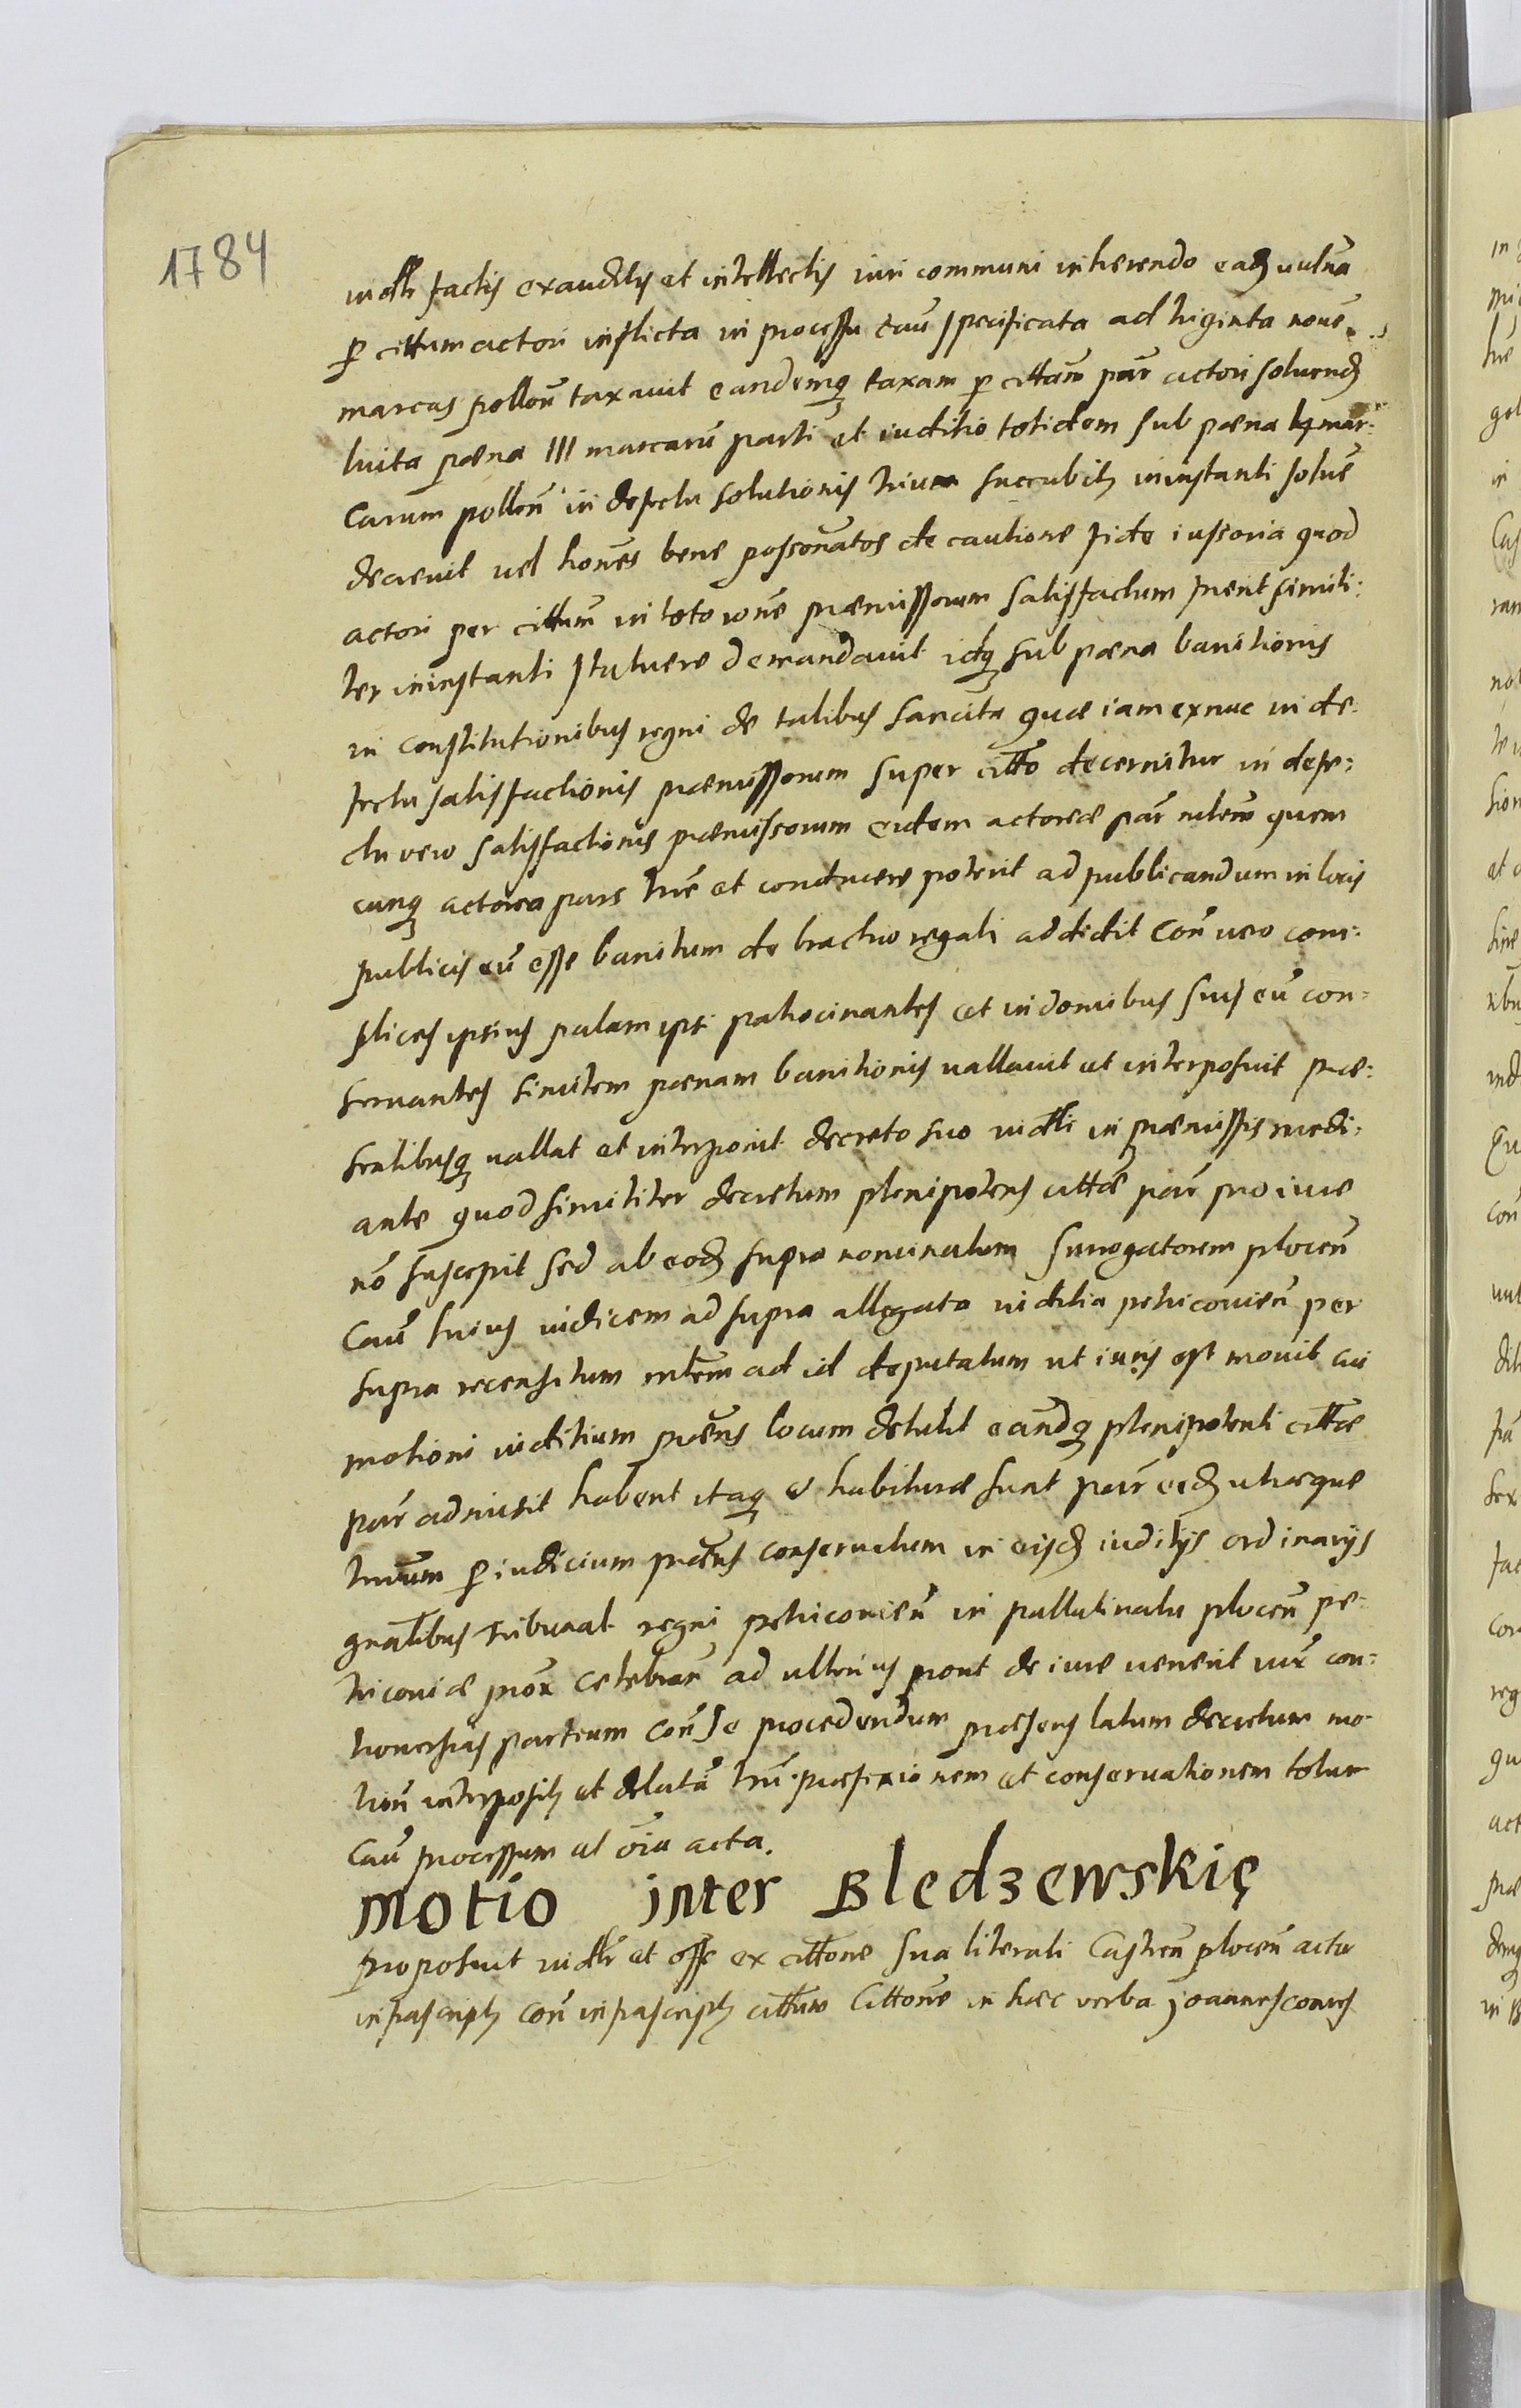 1784
iudtr factis exauditis et intellectis iuri communi inherendo eadẽ uulna
p cittum actori inflicta in processu cau specificata ad triginta noue
marcas pollon taxauit eandemq taxam p cittam par actori soluend
luita pæna III marcaru parti et iuditio totidem sub pæna 14 mar:
carum pollon in defectu solutionis trium succubit ininstanti solue
decreuit uel hones bene possonatos de cautione fide iussoria quod
actori per cittum in toto rone præmissorum satisfactum fuerit simili:
ter ininstanti statuere demandauit idq sub pæna banitionis
in constitutionibus regni de talibus sancita quæ iam exnuc in de:
fectu satisfactionis præmissorum super citto decernitur in defe:
ctu vero satisfactionis præmissorum eidem actoreæ par mlem quem
cunq actorea pars hre et conducere poterit ad publicandum in locis
publicis eu esse banitum de brachio regali addidit Con uero com:
plices ipsius palam ipsi patrocinantes et in domibus suis eu con=
seruantes similem pænam banitionis uallauit et interposuit præ:
sentibusq uallat et interponit decreto suo iudtli in præmissis medi:
ante quod similiter decretum plenipotens cittæ par pro iure
no suscepit sed ab eod supra nominatum surrogatorem plocen
Cau huius iudicem ad supra allegata iuditia petricouien per
supra recensitum mlem ad id deputatum ut iuris est mouit cui
motioni iuditium præns locum detulit eandq plenipotenti cittæ
par admisit habent itaq et habituræ sunt par eæd utræque
trnum p iudicium præns conseruatum in eisd iuditijs ordinarijs
gnalibus tribunal regni petricouien in pallatinatu plocen pe=
tricouiæ prox celebran ad ulterius prout de iure uenerit iux con=
trouersias partium con se procedendum præsens latum decretum mo=
tion interposit et delata trni præfixionem et conseruationem totum
cau processum et oia acta.
Motio inter Bledzewskię
proposuit iudtr et osse ex cittone sua literali Castren plocen actor
infrascript con infrascript cittum Cittone in hæc verba joannes comes